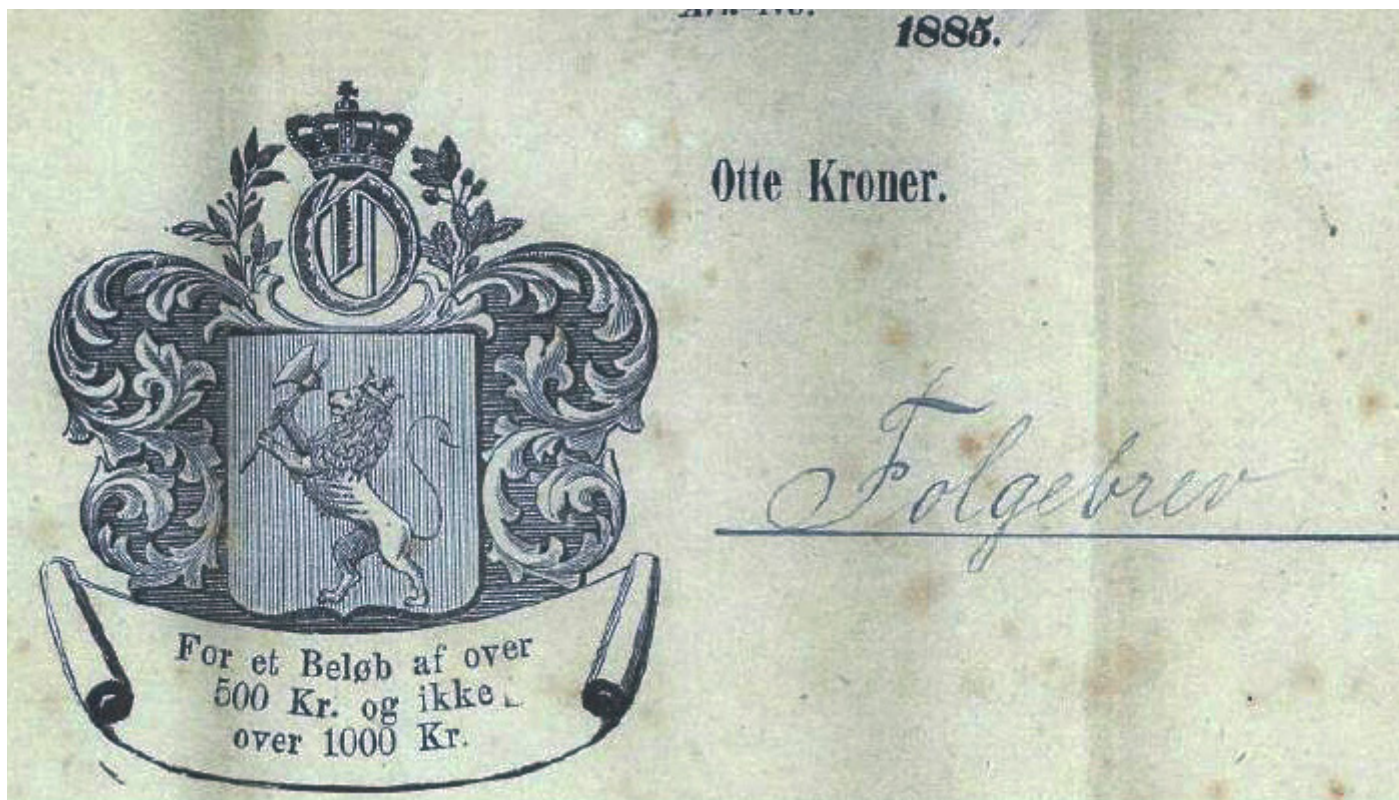 1885.
Otte Kroner.
Folgebrev
For et Beløb af over
500 Kr. og ikke
over 1000 Kr.